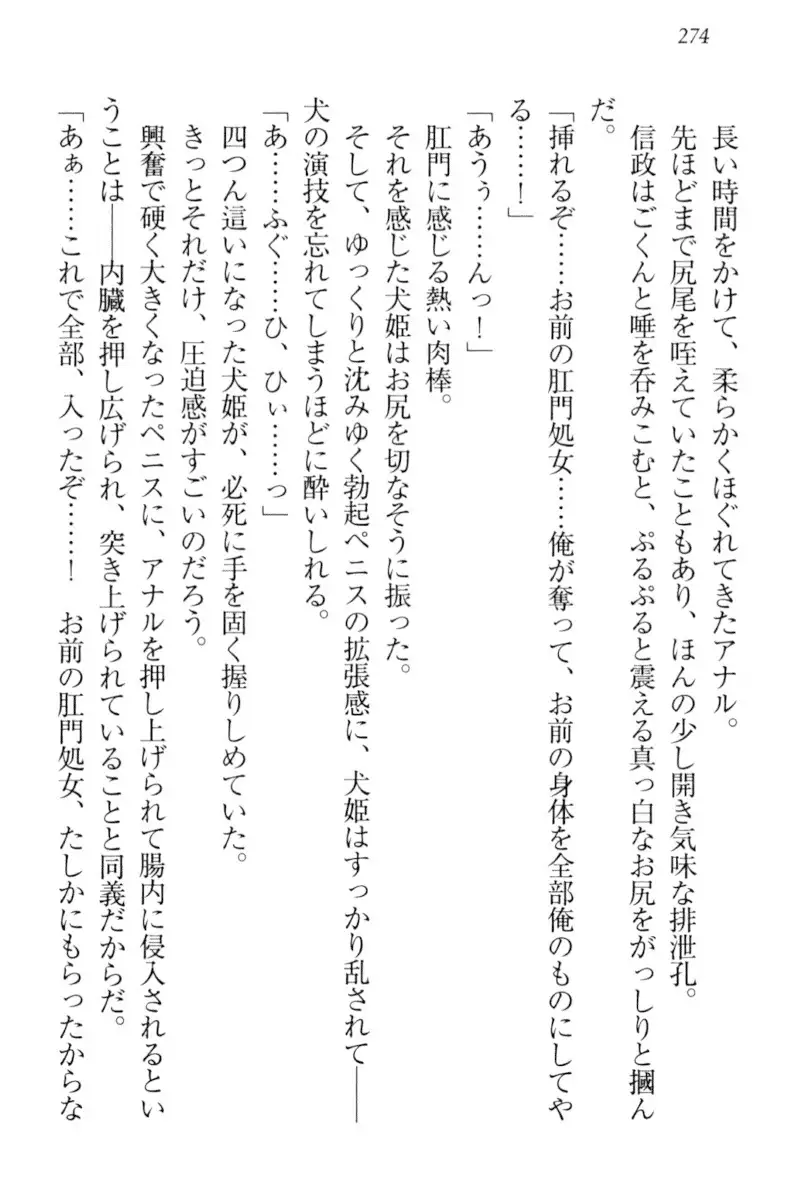 274
長い時間をかけて、柔らかくほぐれてきたアナル。
先ほどまで尻尾を咥えていたこともあり、ほんの少し開き気味な排泄孔。
信政はごくんと唾を呑みこむと、ぷるぷると震える真っ白なお尻をがっしりと摑ん
だ。
「挿れるぞ……お前の肛門処女……俺が奪って、お前の身体を全部俺のものにしてや
る……！」
「あうぅ……んっ！」
肛門に感じる熱い肉棒。
それを感じた犬姫はお尻を切なそうに振った。
そして、ゆっくりと沈みゆく勃起ペニスの拡張感に、犬姫はすっかり乱されて――
犬の演技を忘れてしまうほどに酔いしれる。
「あ……ふぐ……ひ、ひぃ……っ」
四つん這いになった犬姫が、必死に手を固く握りしめていた。
きっとそれだけ、圧迫感がすごいのだろう。
興奮で硬く大きくなったペニスに、アナルを押し上げられて腸内に侵入されるとい
うことは――内臓を押し広げられ、突き上げられていることと同義だからだ。
「あぁ……これで全部、入ったぞ……！　お前の肛門処女、たしかにもらったからな